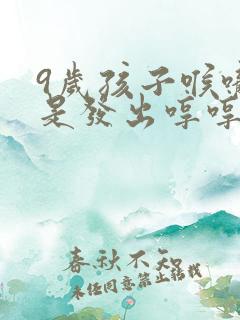 9歲孩子喉嚨
是發出哼哼
春秋不知
未经同意禁止转载